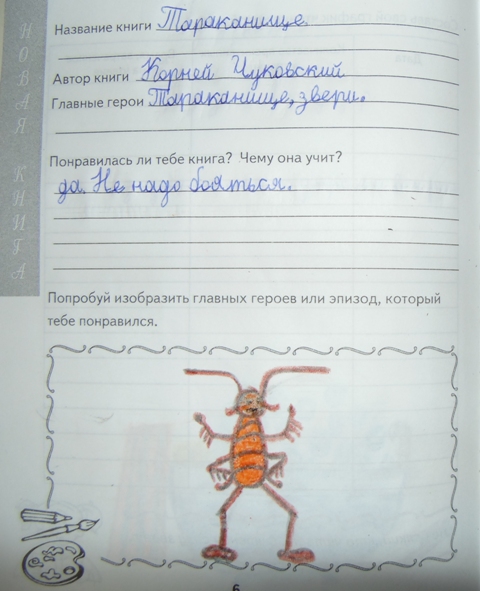 НОВАЯ КНИГА
Название книги Тараканище.
Автор книги Корней Чуковский
Главные герои Тараканище, звери.
Понравилась ли тебе книга? Чему она учит?
да. Не надо бояться.
Попробуй изобразить главных героев или эпизод, который
тебе понравился.
6